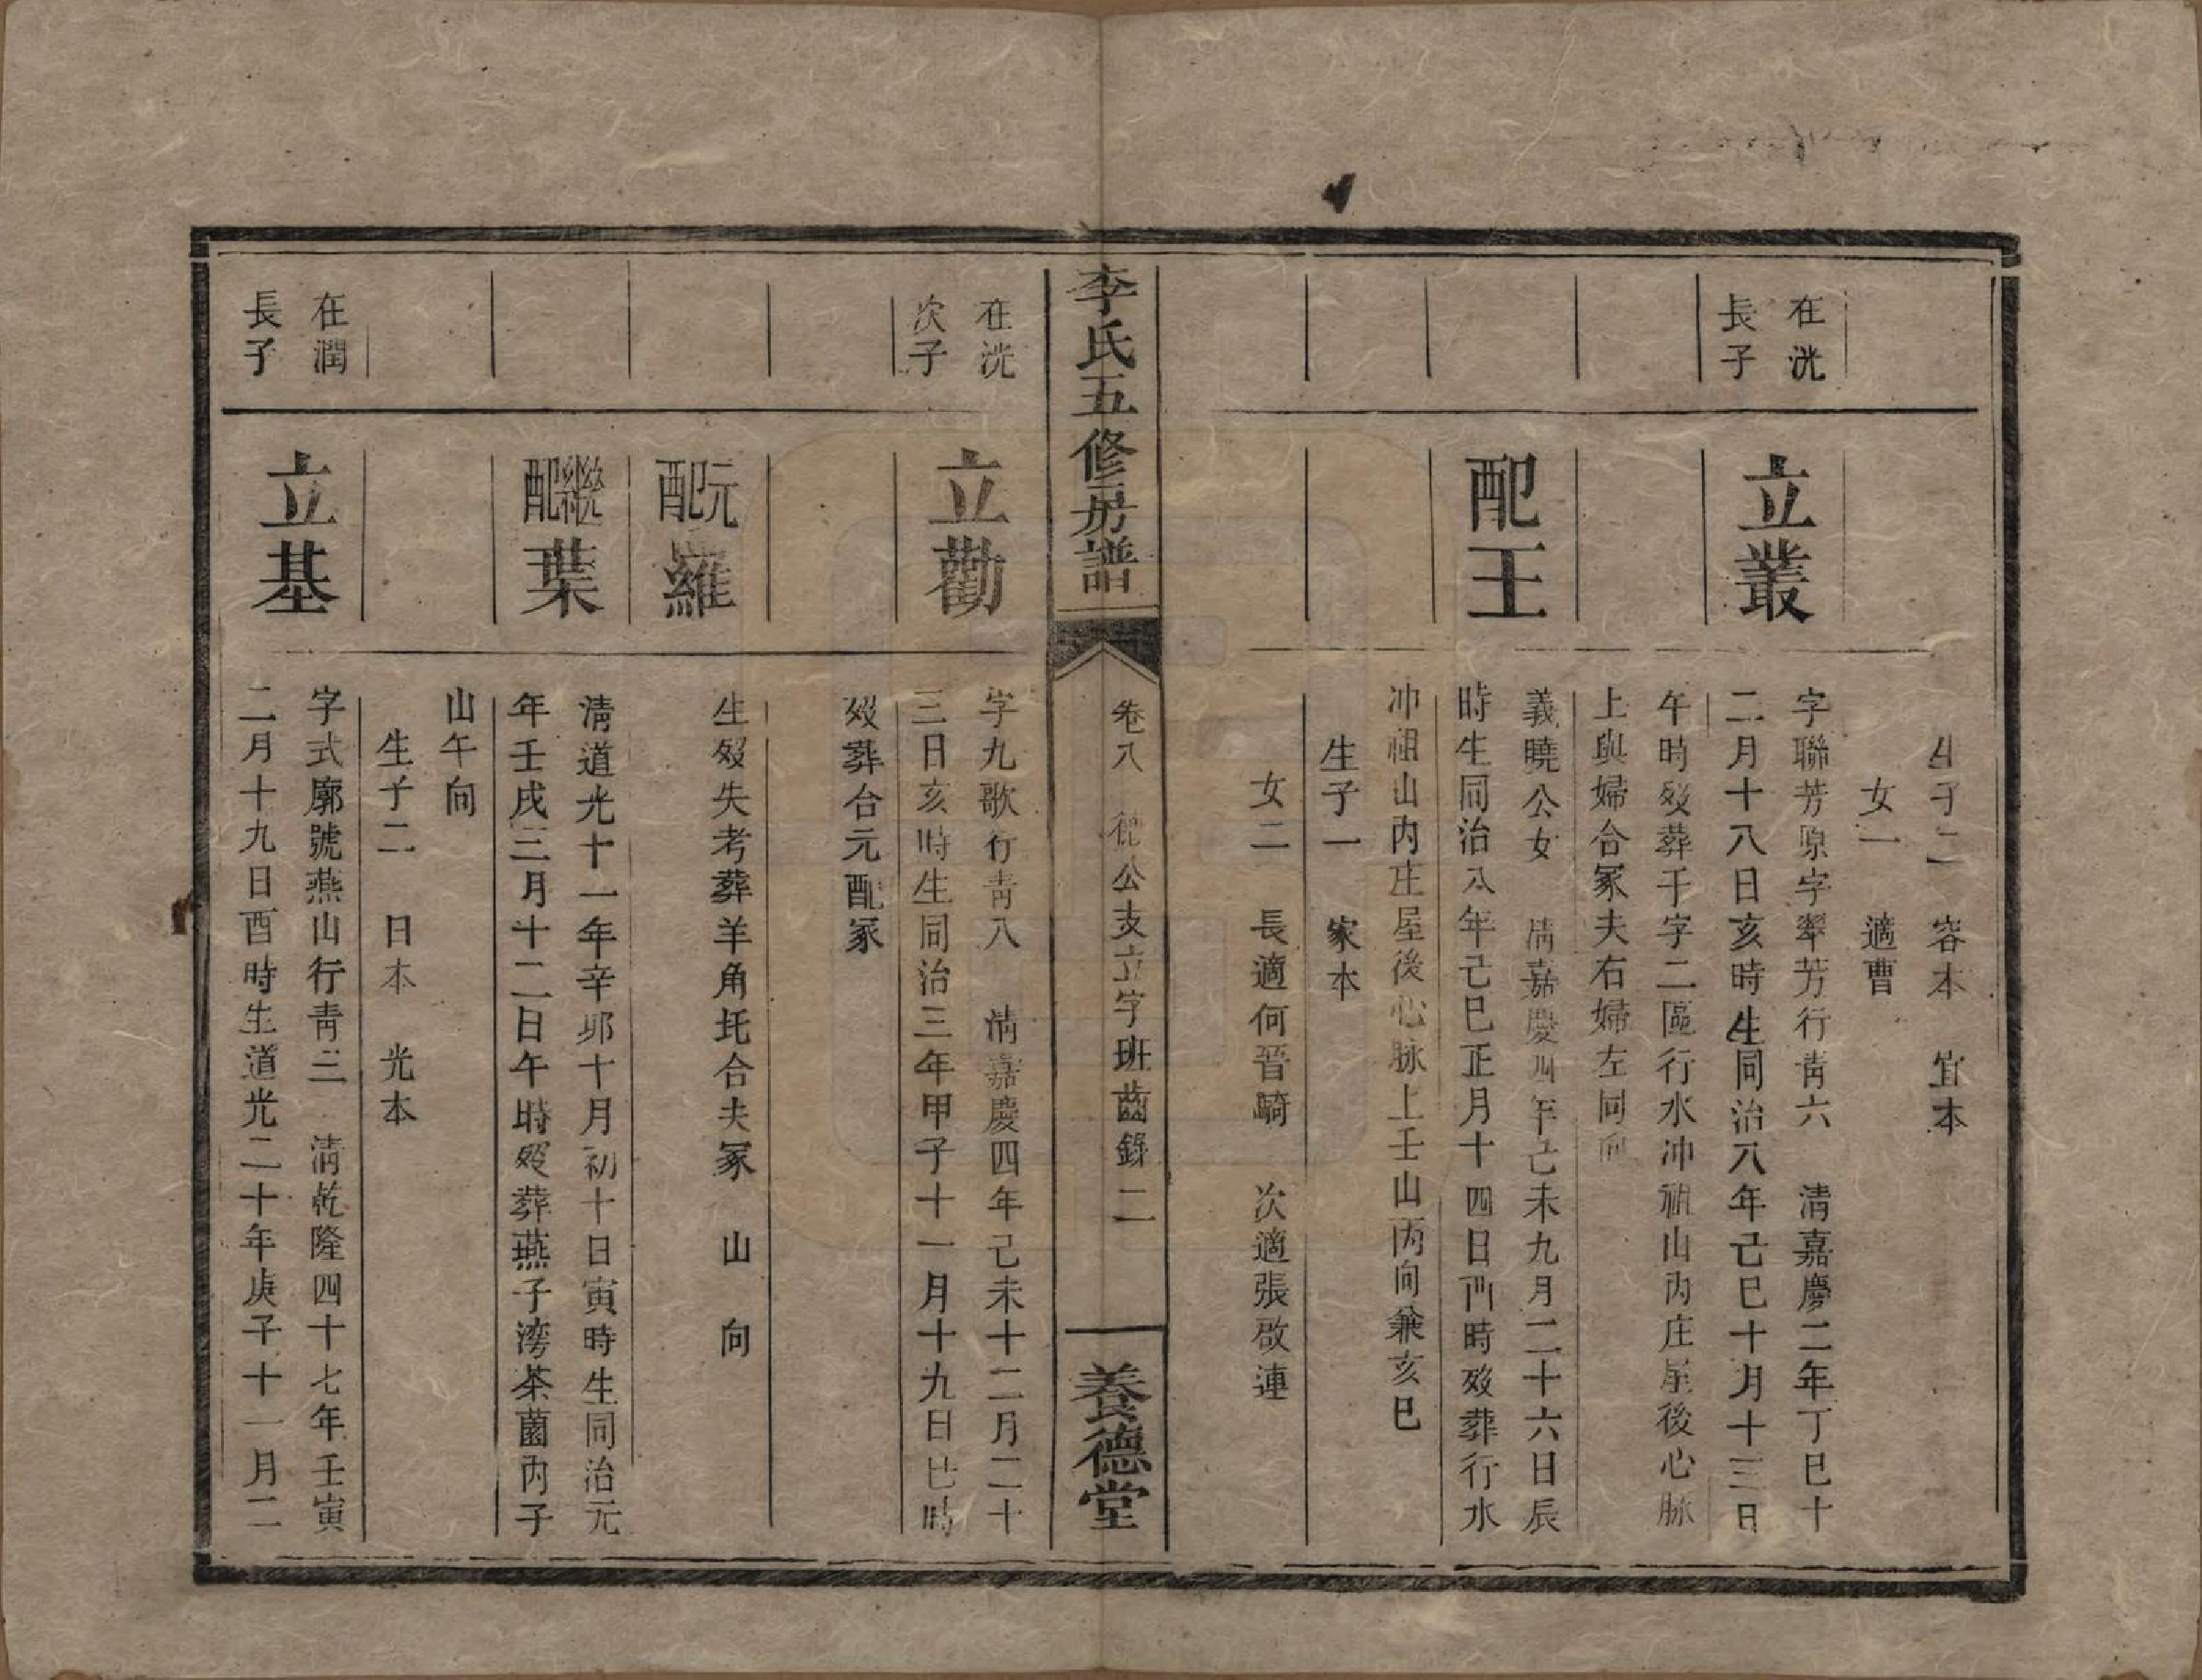 生子二 容本 宜本
女一 適曹
在洸
長子
立叢
字聯芳原字翠芳行靑六 清嘉慶二年丁巳十
二月十八日亥時生同治八年己巳十月十三日
午時歿葬千字二區行水冲祖山內庄屋後心脉
上與婦合冢夫右婦左同向
配王
義曉公女 清嘉慶四年己未九月二十六日辰
時生同治八年己巳正月十四日酉時歿葬行水
冲祖山內庄屋後心脉上壬山丙向兼亥巳
生子一 家本
女二 長適何晉騎 次適張啟連
李氏五修房譜
卷八 公支立字班齒錄 二
養德堂
在洸
次子
立勸
字九歌行靑八 清嘉慶四年己未十二月二十
三日亥時生同治三年甲子十一月十九日巳時
歿葬台元配冢
元配羅
生歿失考葬羊角托合夫冢 山 向
繼配葉
清道光十一年辛卯十月初十日寅時生同治元
年壬戌三月十二日午時歿葬燕子灣茶薗內子
山午向
生子二 日本 光本
在潤
長子
立基
字式廓號燕山行靑三 清乾隆四十七年壬寅
二月十九日酉時生道光二十年庚子十一月二